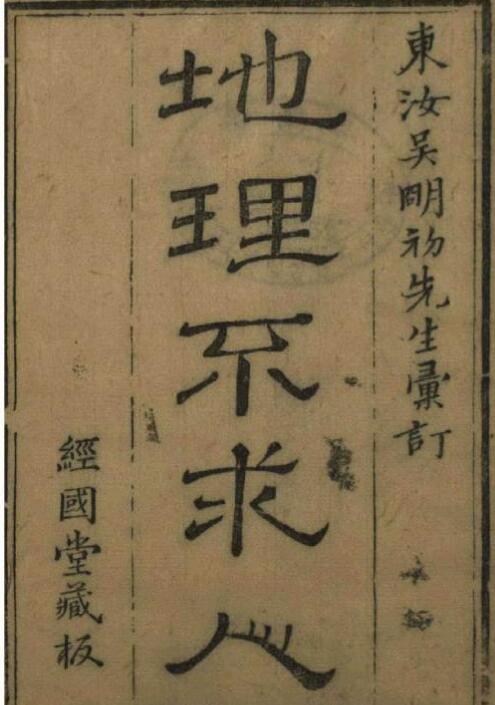 東汝吳明初先生彙訂
地理不求人
經國堂藏板